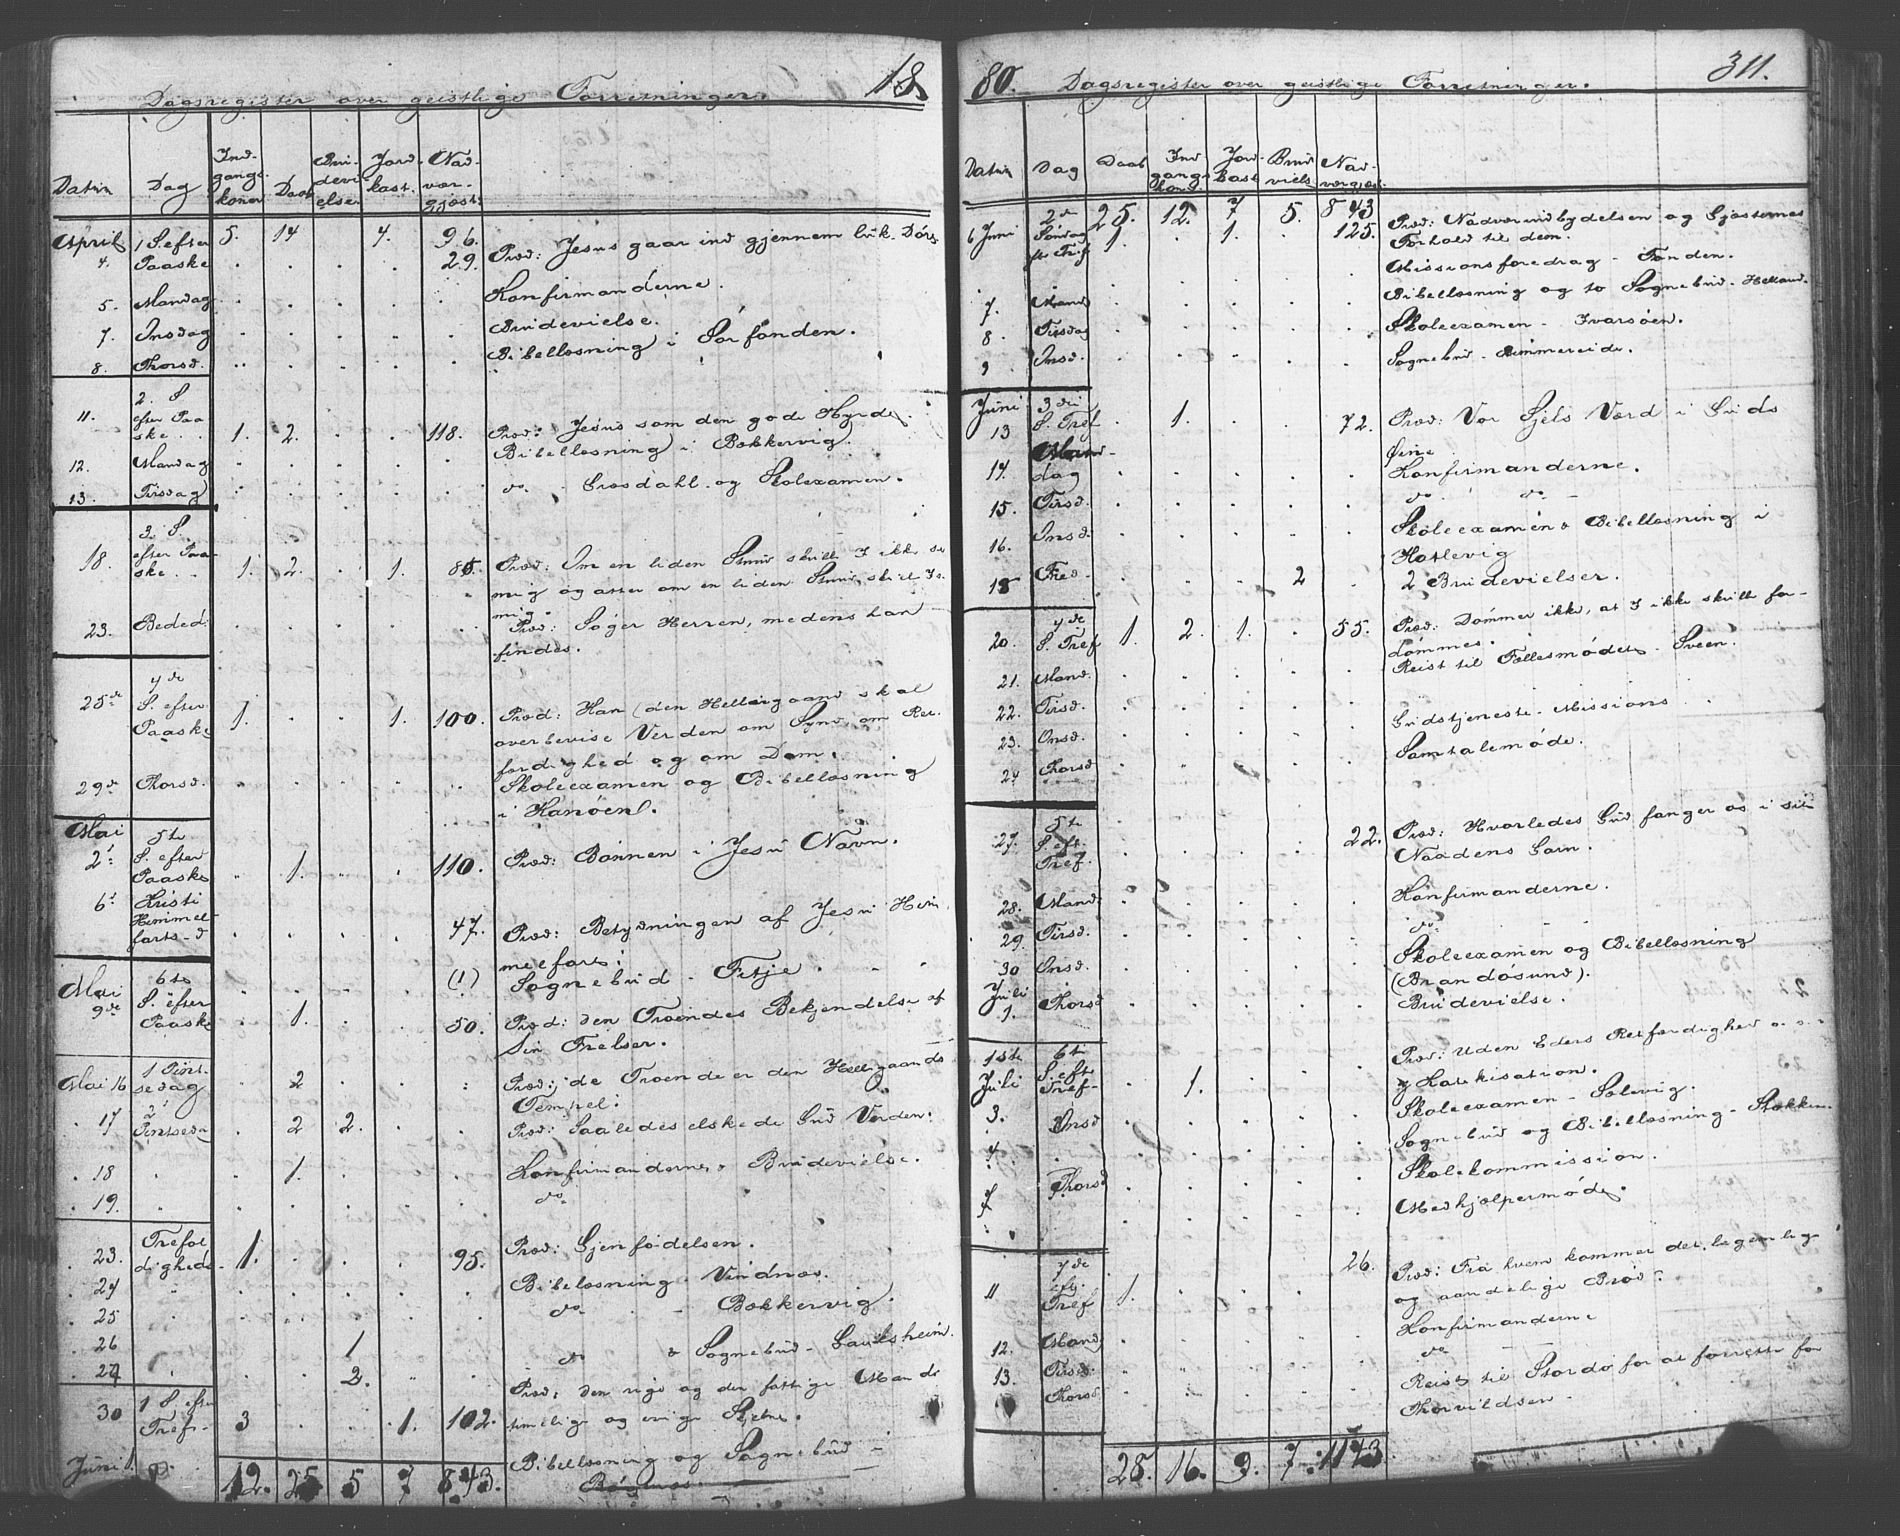 18
Dagsregister over geistlige Forretninger.
Datum Dag Ind-gangs-koner Daab Brudevielse Jord-kast. Nad-vær-gjæst.
April 1 S. efter 5. 14 4. 96.
4. Paaske 29. Præd: Jesus gaar ind gjennem luk. Døre
Konfirmanderne.
5. Mandag
7. Onsdag Brudevielse.
8. Thorsd. Bibellæsning i Sørfonden.
2. S
11. efter Paa
ske 1. 2. 118. Præd: Jesus som den gode Hyrde.
12. Mandag Bibellæsning i Bækkervig.
13. Tirsdag do. og Skoleexamen.
3. S.
18. efter Paa-
ske 1. 2. 1. Præd: Om en liden Stund skulle I ikke se
mig og atter om en liden Stund skul I se
mig.
23. Beded: Præd: Søger Herren, medens han
findes.
4de
25de S. efter
Paaske 1. 1. 100. Præd: Han (den Helligaand skal
overbevise Verden om Synd, om Ret-
færdighed og om Dom.
29de Thorsd. Skoleexamen og Bibellæsning
i Kanøen.
Mai 5te
2. S. efter
Paaske 1. 110. Præd: Bønnen i Jesu Navn.
6. Kristi
Himmel
farts-d 47. Præd: Betydningen af Jesu Him
melfart.
Mai 6te (1) Sognebud - Fitje.
9de S. efter
Paaske 1. 50. Præd: den Troendes Bekjendelse af
Sin Frelser.
Mai 16 1 Pint-
sedag 2 Præd: de Troende er den Helligaands
Tempel:
17 2 Pintseda 2 2. Præd: Saaledes elskede Gud Verden:
18 1. Konfirmanderne & Brudevielse.
19. do.
23. Trefol
digheds- 1. 95. Præd: Gjenfødelsen.
24 Bibellæsning Vindnæs.
25 do. - Bækkervig.
26 1 do & Sognebud - Lauksheim.
27 2.
30 1 S. efter Præd: den rige og den fattige Mands
Tref- 3 1. 102. timelige og evige Skjebne.
Juni 1. Bibellæsning og Sognebud -
12. 25 5 7 843.
80. Dagsregister over geistlige Forretninger. 311.
Datum Dag Daab Ind gangs kone Jord-kast Brud viels. Nad-værgjæst.
2de 25. 12. 7 5. 843
6 Juni Søndag 1. 1. 125. Præd: Nadverindbydelsen og Gjæsternes
ft. Tref Forhold til dem.
Missionsforedrag - Fonden.
7. Mand Bibellæsning og to Sognebud - Helland.
8. Tirsdag Skoleexamen - Ivarsøen.
9 Onsd. Sognebud - Rimmereide.
Juni 3die
13 S. Tref 1. 72. Præd: Vor Sjels Værd i Guds
Øine.
14. Mandag Konfirmanderne.
do. do -
15. Tirsd. Skoleexamen & Bibellæsning i
16. Onsd. Hatlevig
18 Fred. 2 2 Brudevielser.
4de
20. S. Tref 1. 2. 1. 55. Præd: Dømmer ikke, at I ikke skulle for-
dømmes.
21. Mand. Reist til Fællesmøde - Sveen.
22. Tirsd. Gudstjeneste - Missions
23. Onsd. Samtalemøde.
24 Thorsd
5te
27. S. eft. 22. Præd: Hvorledes Gud fanger os i sit
Tref. Naadens Garn.
28. Mand. Konfirmanderne.
29. Tirsd. do.
30 Onsd. Skoleexamen og Bibellæsning
Juli (Brandøsund).
1. Thorsd Brudevielse.
6te
Juli S. eft Præd: Uden Eders Retfærdighed o. s.
Tref- 1. Katekisation.
3. Onsd Skoleexamen - Solevig.
4. Sognebud og Bibellæsning - Stokken.
Thorsd Skolekommission.
Medhjælpermøde.
7de 26.
11 eft. Præd: Fra hvem kommer det legemlige
Tref 1. og aandelige Brød?
12. Mand Konfirmanderne
13. Tirsd. do
Thorsd. Reist til Stordø for at forrette for
Thorvildsen.
28. 16. 9. 7. 1143